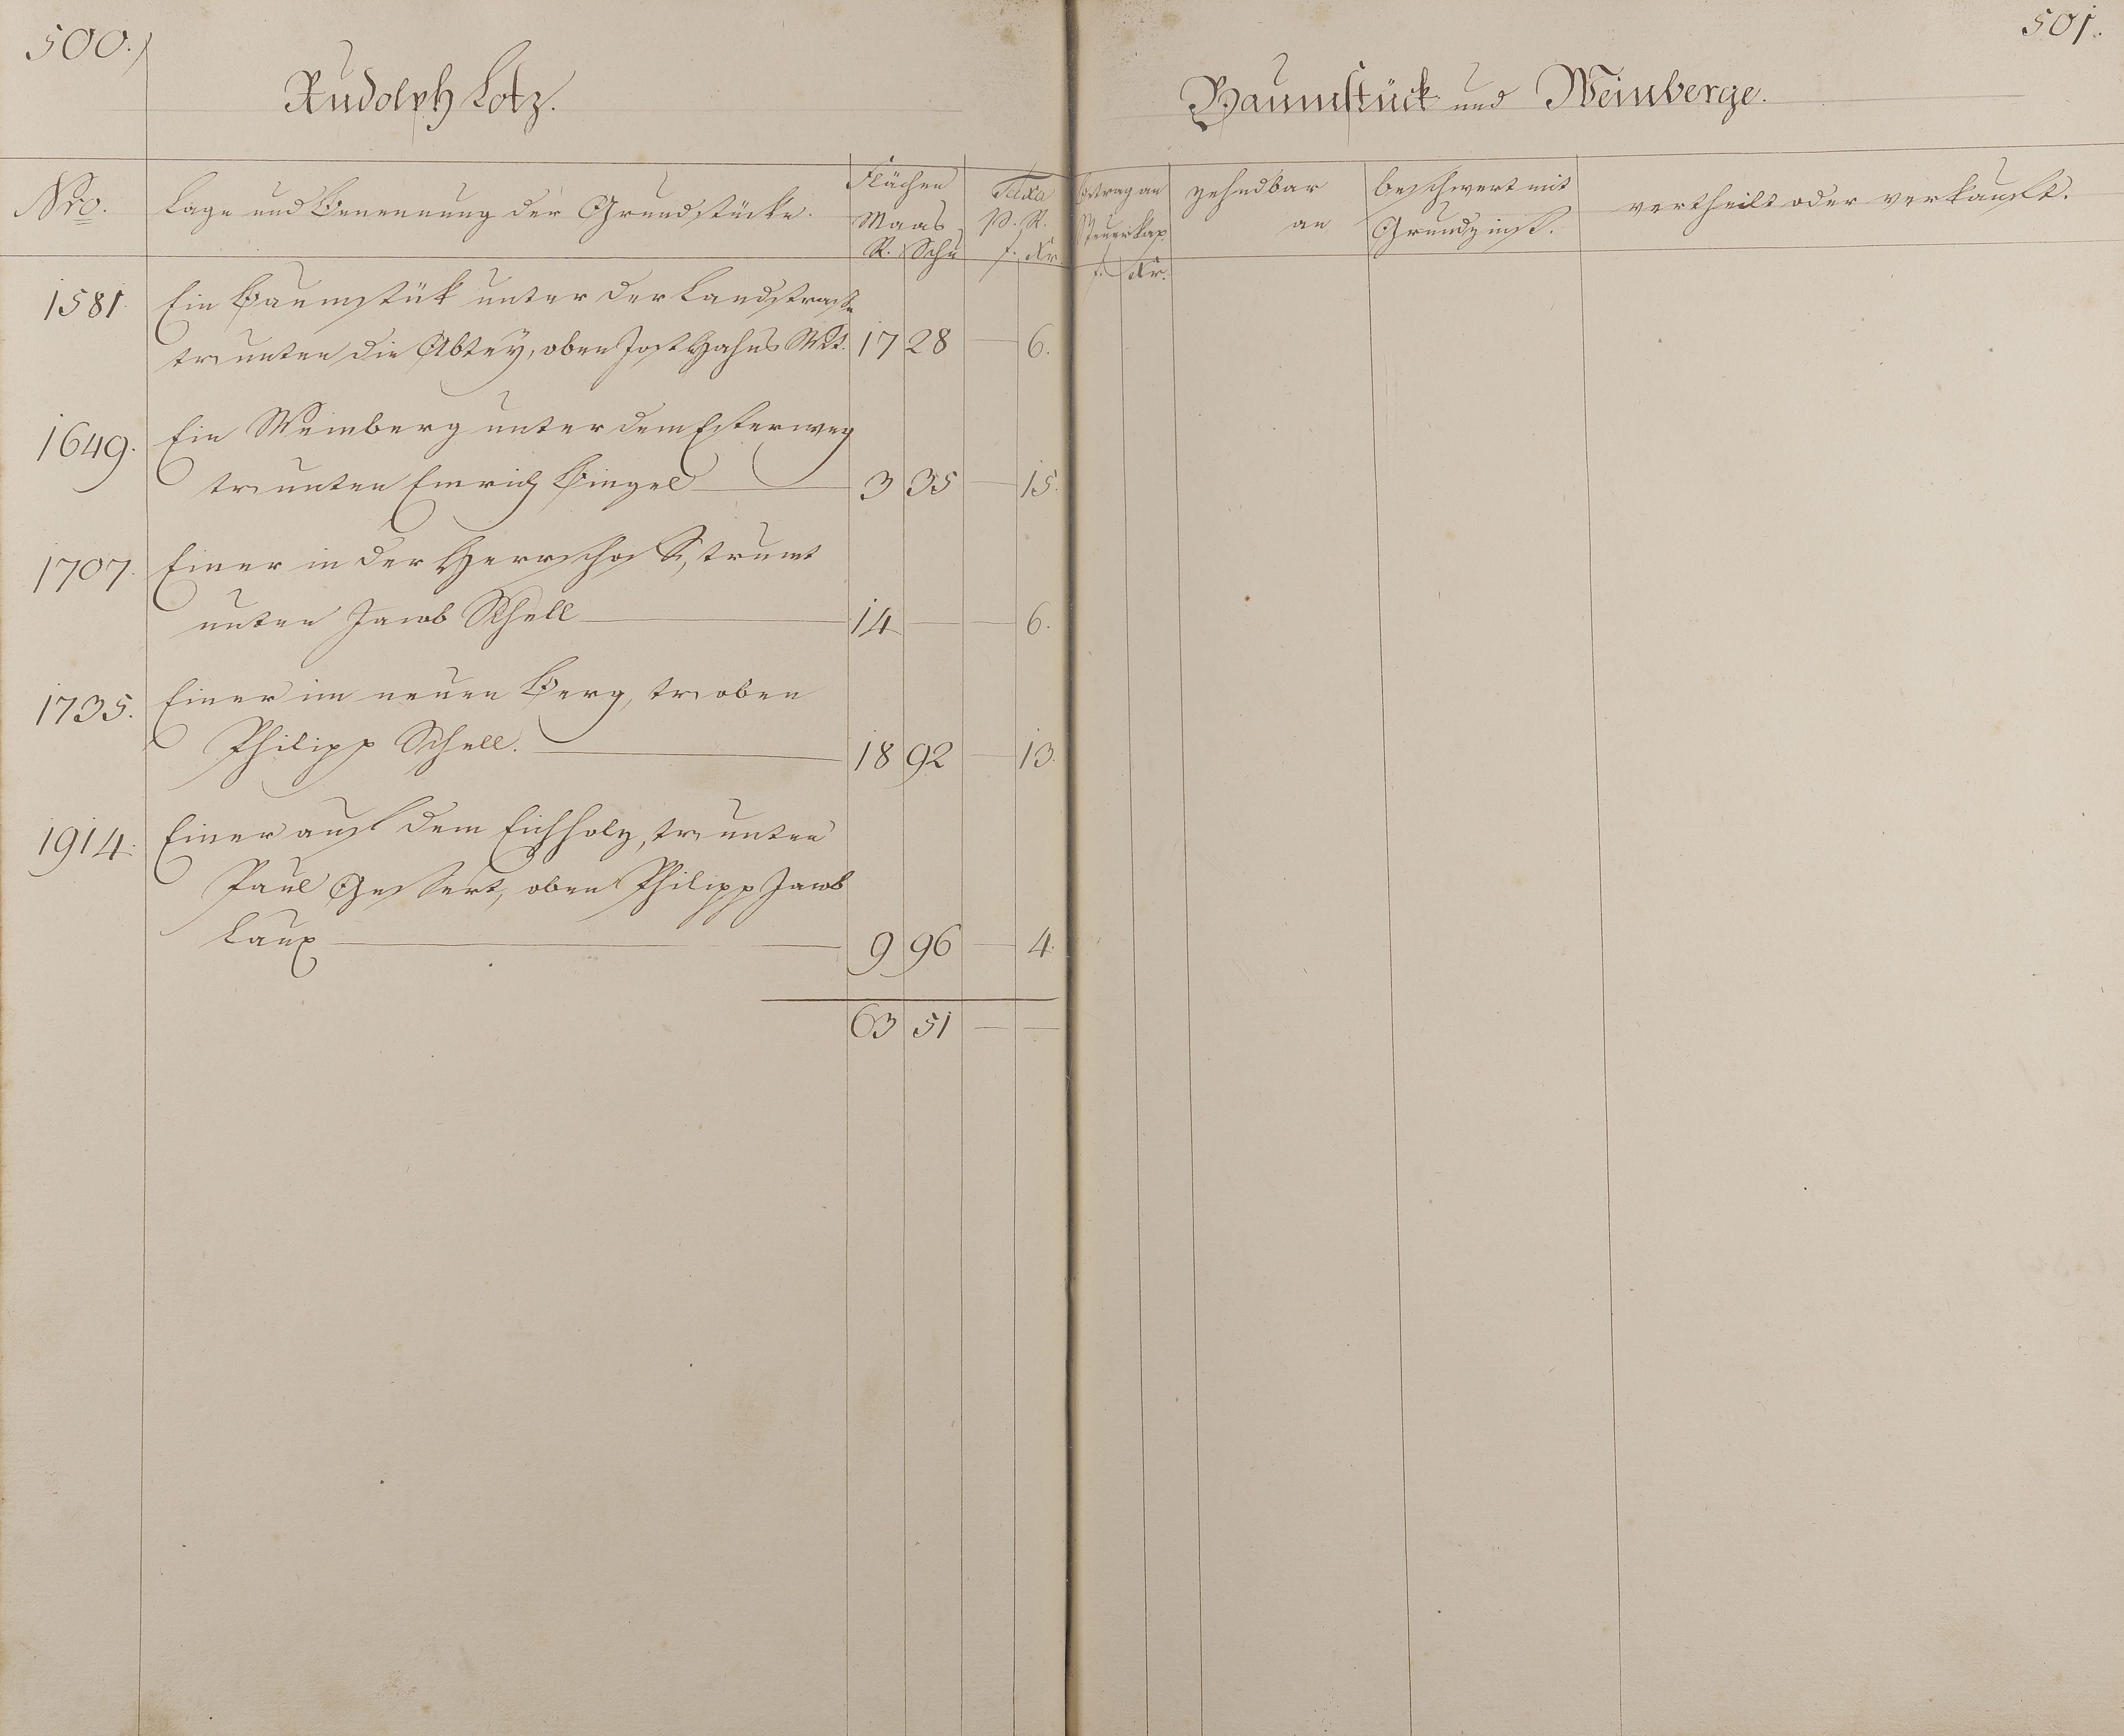 500.
Rudolph Lotz.
Nro.
Lage und Benennung der Grundstücke.
Flächen
Maas
R. Schu
Taxa
p. R.
f. Kr.
1581. Ein Baumstük unter der Landstrase
tr. unten die Abtey, oben Jost Hahns Wit. 17 28 — 6.
1649. Ein Weinberg unter dem Esterweg
tr. unten Emrich Bingel 3 35 — 15.
1707. Einer in der Herrschaft, trumt
unten Jacob Schell 14 — — 6.
1735. Einer im neuen Berg, tr. oben
Philipp Schell. 18 92 — 13.
1914. Einer auf dem Eichholz, tr. unten
Paul Gessert, oben Philipp Jacob
Laux 9 96 — 4.
63 51 — —
501.
Baumstück und Weinberge.
Betrag an
Steuerkap.
f. Kr.
zehndbar
an
beschwert mit
Grundzinß.
vertheilt oder verkauft.